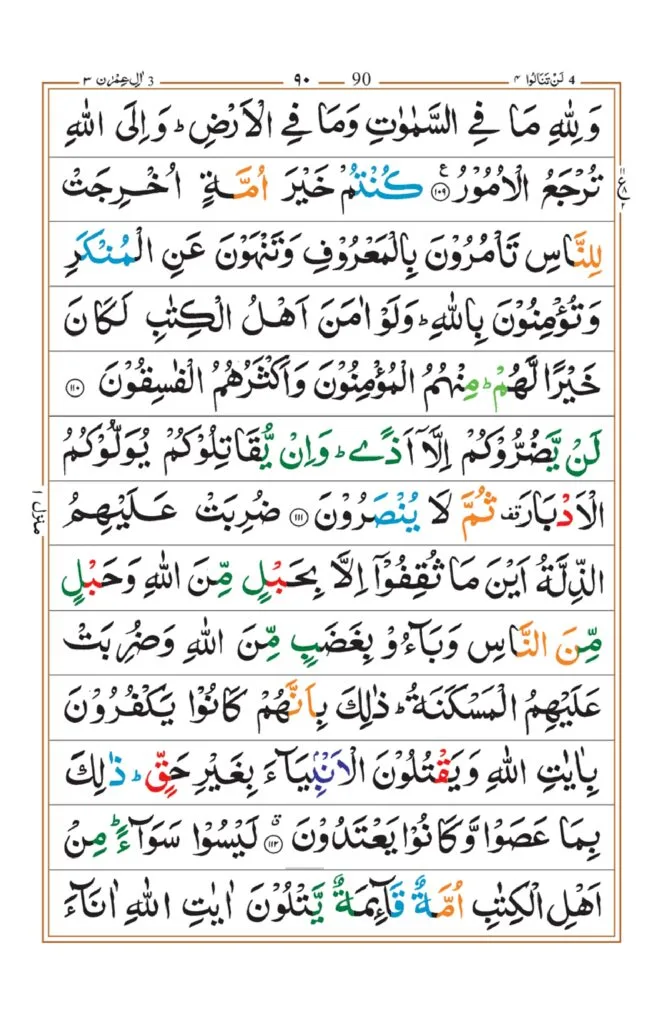 4 لَنْ تَنَالُوا ۴ 90 ۹۰ 3 اٰلِ عِمْرٰن ۳
وَلِلّٰهِ مَا فِي السَّمٰوٰتِ وَمَا فِي الْاَرْضِ ؕ وَاِلَى اللّٰهِ
تُرْجَعُ الْاُمُوْرُ ﴿۱۰۹﴾ ع كُنْتُمْ خَيْرَ اُمَّةٍ اُخْرِجَتْ
لِلنَّاسِ تَاْمُرُوْنَ بِالْمَعْرُوْفِ وَتَنْهَوْنَ عَنِ الْمُنْكَرِ
وَتُؤْمِنُوْنَ بِاللّٰهِ ؕ وَلَوْ اٰمَنَ اَهْلُ الْكِتٰبِ لَكَانَ
خَيْرًا لَّهُمْ ؕ مِنْهُمُ الْمُؤْمِنُوْنَ وَاَكْثَرُهُمُ الْفٰسِقُوْنَ ﴿۱۱۰﴾
لَنْ يَّضُرُّوْكُمْ اِلَّاۤ اَذًى ؕ وَاِنْ يُّقَاتِلُوْكُمْ يُوَلُّوْكُمُ
الْاَدْبَارَ قف ثُمَّ لَا يُنْصَرُوْنَ ﴿۱۱۱﴾ ضُرِبَتْ عَلَيْهِمُ
منزل ۱
الذِّلَّةُ اَيْنَ مَا ثُقِفُوْۤا اِلَّا بِحَبْلٍ مِّنَ اللّٰهِ وَحَبْلٍ
مِّنَ النَّاسِ وَبَآءُوْ بِغَضَبٍ مِّنَ اللّٰهِ وَضُرِبَتْ
عَلَيْهِمُ الْمَسْكَنَةُ ؕ ذٰلِكَ بِاَنَّهُمْ كَانُوْا يَكْفُرُوْنَ
بِاٰيٰتِ اللّٰهِ وَيَقْتُلُوْنَ الْاَنْۢبِيَآءَ بِغَيْرِ حَقٍّ ؕ ذٰلِكَ
بِمَا عَصَوْا وَّكَانُوْا يَعْتَدُوْنَ ﴿۱۱۲﴾ ق لَيْسُوْا سَوَآءً ؕ مِنْ
اَهْلِ الْكِتٰبِ اُمَّةٌ قَآئِمَةٌ يَّتْلُوْنَ اٰيٰتِ اللّٰهِ اٰنَآءَ